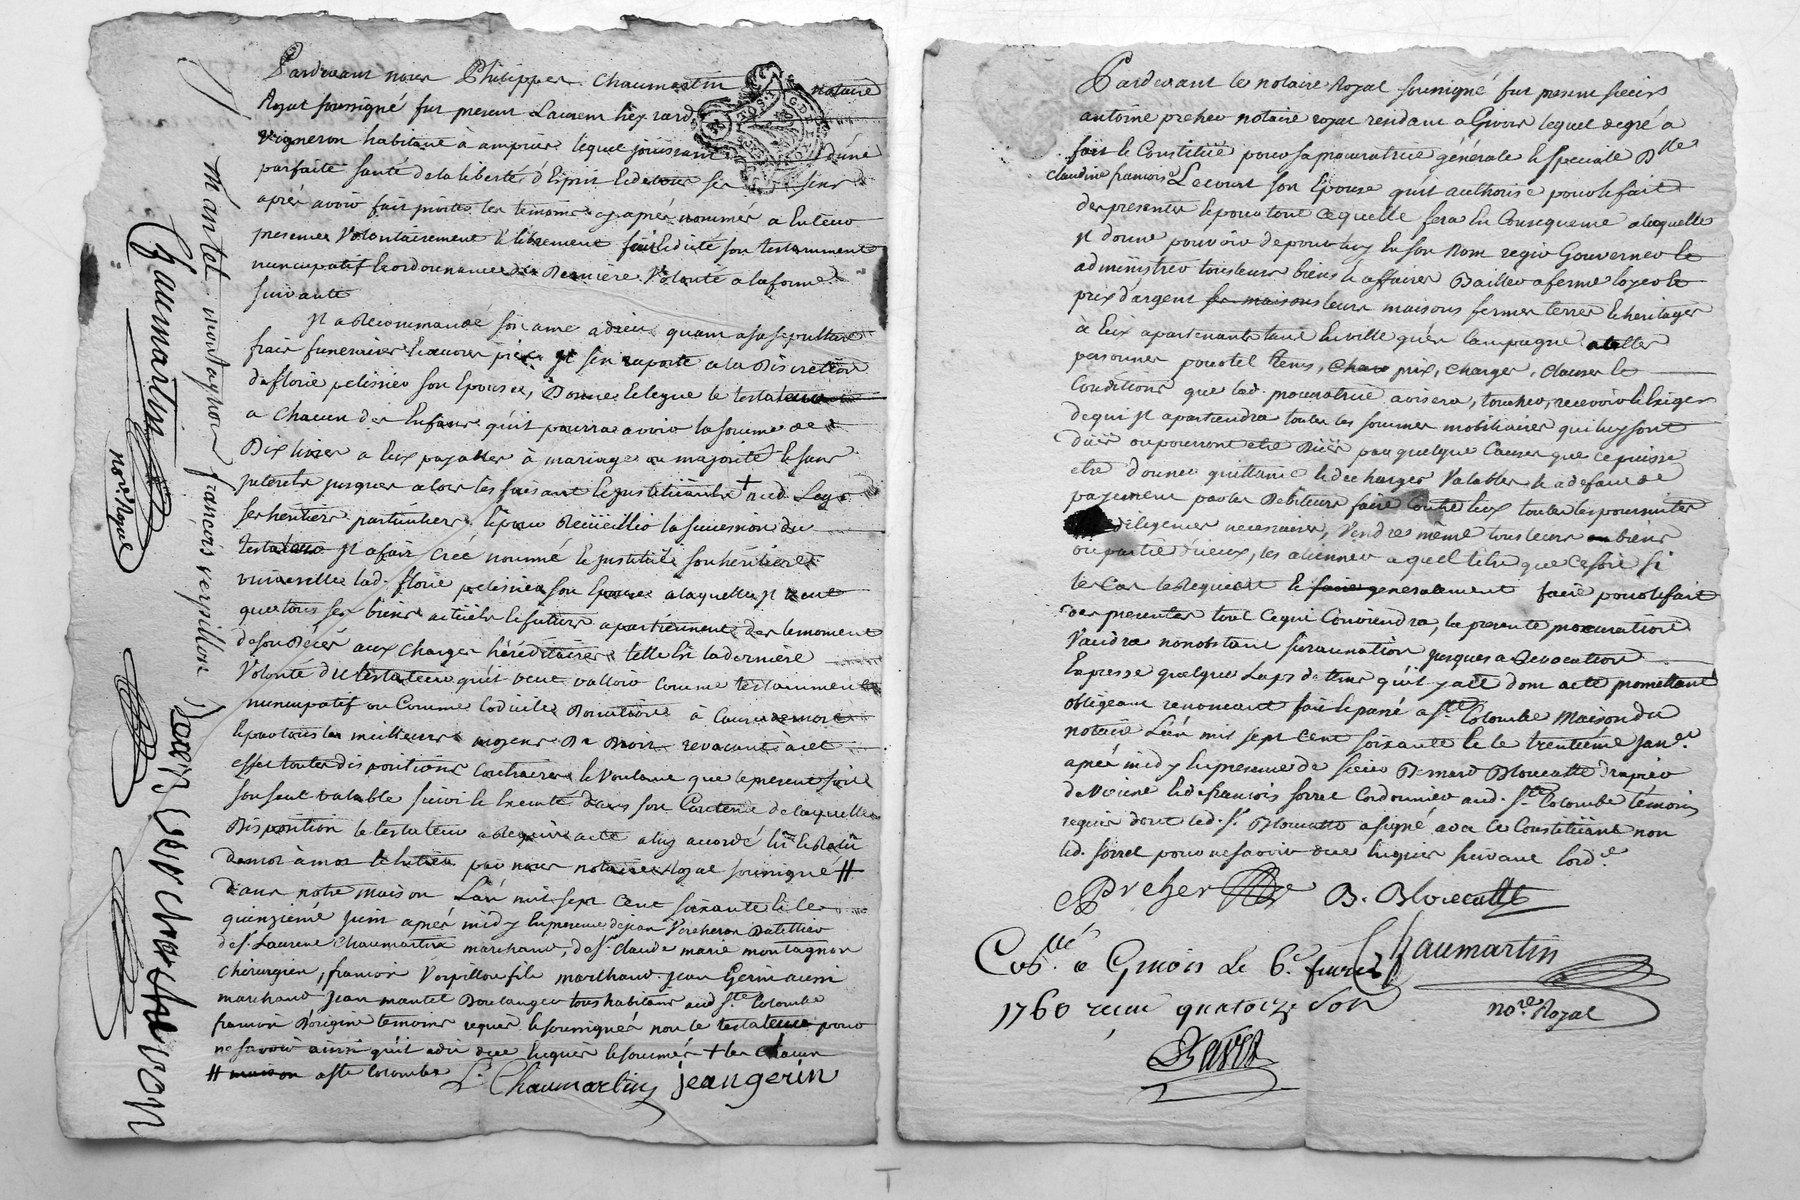 Pardevant nous Philippes Chaumartin notaire
Royal soussigné fut present Laurent heyraud
vigneron habitant à ampuis lequel jouissant d'une
parfaite santé de la liberté d'Esprit Et de tous ses sens
après avoir fait prier les témoins cy après nommés a Luteur
presence Volontairement & librement fait Et dicté son testamment
nuncupatif Et ordonnance de Derniere Volonté a la forme
suivante
Il a Recommandé son ame a dieu quant a sa sepulture
frais funeraires Et œuvres pies Il s'en raporte a la Discretion
de florie pelissier son Epouse, Donne Et legue le testateur
a Chacun des Enfans qu'il pourra avoir la somme de
Dix livres a Eux payables à mariage ou majorité Et sans
Interets jusques alors les faisant Et instituants + aud. Legs
ses heritiers particuliers, Et pour Recüeillir la succession du
testateur Il a fait créé nommé Et institué son héritiere
universelle lad. florie pelissier son Epouse a laquelle Il veut
que tous ses biens actuels Et futurs apartiennent des le moment
de son Decès aux Charges héréditaires telle Est la derniere
Volonté du testateur qu'il veut valloir comme testamment
nuncupatif ou Comme Codicile Donation à Cause de mort
Et par tous les meilleurs moyens De Droit revocant à cet
effet toutes dispositions Contraires Et Voulant que le present soit
son seul valable suivi Et Executé dans son Contenu de laquelle
Disposition le testateur a Requis acte a luy accordé lû Et Relû
de mot à mot Et Entier par nous notaire Royal soussigné #
Dans notre maison L'an mil sept cent soixante Et le
quinzieme Juin après midy En presence de jean Vercheron Batellier
de Sr. Laurent Chaumartin marchand, de Sr. Claude marie montagnon
chirurgien, françois Verpillon fils marchand jean Gerin aussi
marchand jean mantel Boulanger tous habitans aud Ste Colombe
temoins requis Et soussignés non le testateur pour
ne savoir ainsi qu'il a dit de ce Enquis Et sommés + les chacun
# maison a Ste Colombe
L. Chaumartin jean gerin
Mantel montagnon françois verpillon
Jean vercheron
Chaumartin
nore. Royal
Pardevant le notaire Royal soussigné fut present sieur
antoine preher notaire royal residant a Givors lequel de gré a
fait Et Constitüé pour sa procuratrice générale Et speciale Dlle
claudine françoise Lecourt son Epouse qu'il authorise pour le fait
des presentes Et pour tout ce quelle fera En Consequence a laquelle
Il donne pouvoir de pour luy En son Nom regir Gouverner Et
administrer tous leurs biens Et affaires Bailler a ferme loyer Et
prix d'argent les maisons leurs maisons fermes terres Et heritages
à Eux apartenants tant En ville qu'en Campagne a telles
personnes pour tel tems, Chau prix, charges, clauses Et
Conditions que lad. procuratrice avisera, toucher, recevoir Et Exiger
de qui Il apartiendra toutes les sommes mobiliaires qui luy sont
düës ou pourront etre Düës par quelque Cause que ce puisse
etre donner quittance Et decharges Valables Et a defaut de
payement par les Debiteurs faire Contre Eux toutes les poursuites
deligences necessaires, Vendre même tous leurs biens
ou partie d'iceux, les aliener a quel titre que ce soit si
le Cas le Requiert Et faire generalement faire pour le fait
des presentes tout Ce qui Conviendra, la presente procuration
Vaudra nonobstant surannation jusques a Revocation
Expresse quelques Laps de tems qu'il y ait dont acte promettant
obligeant renonceant fait Et passé a Ste Colombe Maison du
notaire L'an mil sept cent soixante Et le trentieme janer.
après midy En presence de sieur Bernard Bloucatte
de Vienne Et de françois sorrel Cordonnier aud. Ste Colombe témoins
requis dont led. Sr. Bloucatte a signé avec le Constitüant non
led. sorrel pour ne savoir de ce Enquis suivant l'orde.
Preher B. Bloucatte
Chaumartin
nore. Royal
Coslé. a Givors Le 6e. fevrier
1760 recu quatorze sols